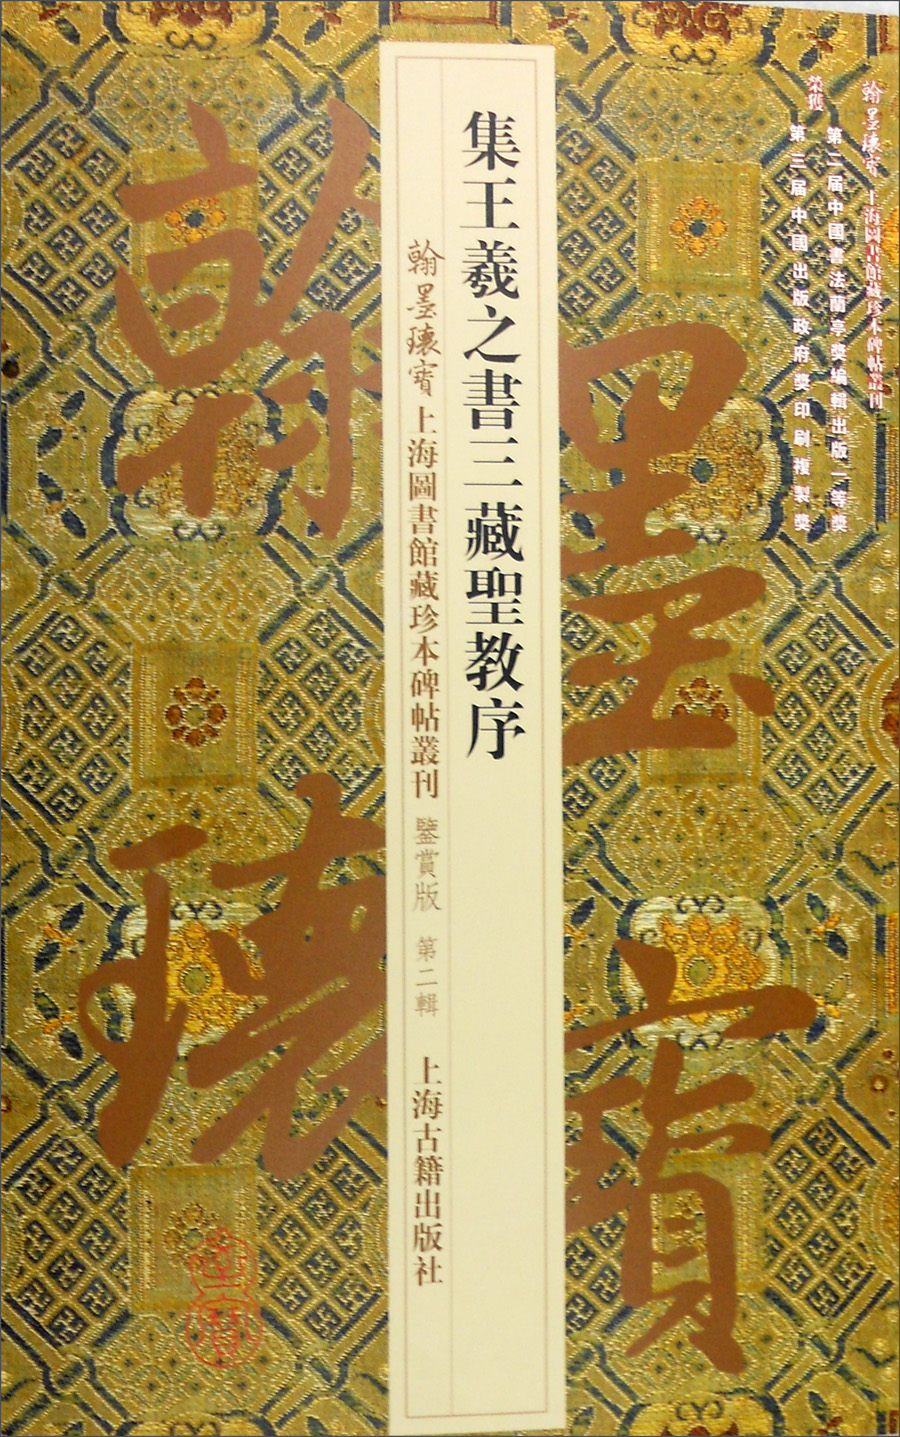 翰墨瓌寶 上海圖書館藏珍本碑帖叢刊
榮獲
第二届中國書法蘭亭獎編輯出版一等獎
第三届中國出版政府獎印刷複製獎
翰墨
瓌寶
集王羲之書三藏聖教序
翰墨瓌寶 上海圖書館藏珍本碑帖叢刊 鑒賞版 第二輯 上海古籍出版社